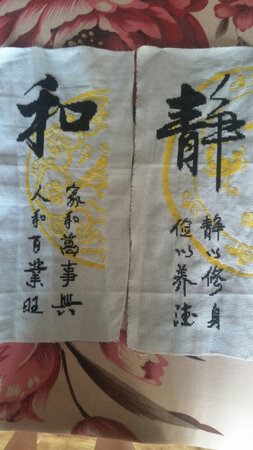 和
家和萬事興
人和百業旺
静
静以修身
俭以养德